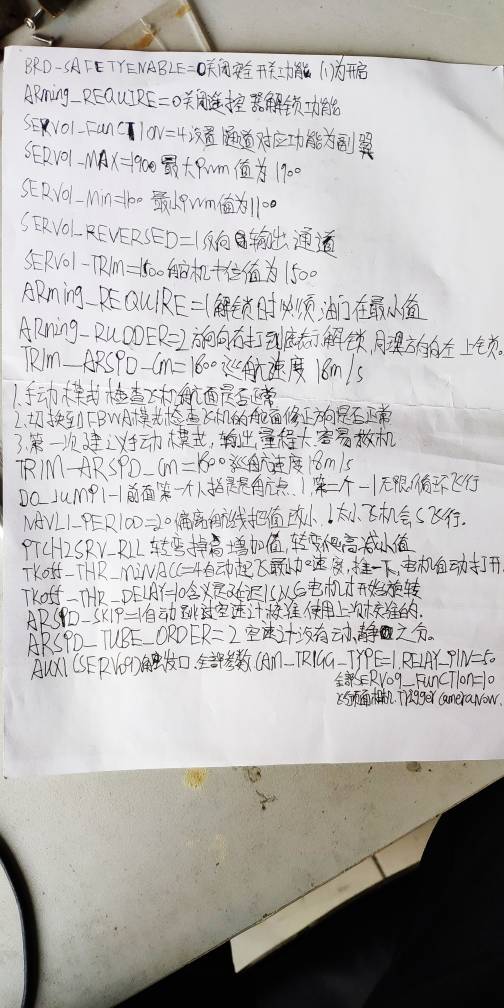 BRD-SAFETYENABLE=0关闭安全开关功能 (1)为开启
ARming_REQUIRE=0关闭遥控器解锁功能
SERVO1_FUNCTION=4设置通道对应功能为副翼
SERVO1_MAX=1900最大Pwm值为1900
SERVO1_Min=1100最小Pwm值为1100
SERVO1_REVERSED=1反向输出通道
SERVO1-TRIm=1500舵机中位值为1500
ARming_REQUIRE=1解锁时必须油门在最小值
ARming-RUDDER=2方向向右打到底执行解锁,同理方向向左上锁。
TRIM_ARSPD_Cm=1800巡航速度18m/s
1.手动模式检查飞机舵面是否正常
2.切换到FBWA模式检查飞机的舵面修正方向是否正常
3.第一次建议手动模式,输出量程大容易救机
TRIM-ARSPD_Cm=1800巡航速度18m/s
DO_JUMP1-1前面第一个1指是航点,1第二个-1无限循环飞行
NAVL1-PERIOD=20偏离航线把值改小,太小飞机会S飞行.
PTCH2SRV_RLL转弯掉高增加值,转弯偏高减小值
TKOff-THR_MINACC=4自动起飞最小加速度,推一下,电机自动打开
TKOff-THR_DELAY=10含义是延迟1S 电机才开始旋转
ARSPD-SKIP=1自动跳过空速计校准 使用上次校准的.
ARSPD_TUBE_ORDER=2空速计没有动,静之分。
AUX1(SERVO9)触发口,全部参数CAM_TRIGG_TYPE=1.RELAY_PIN=50
全部SERVO9_FUNCTION=10
Trigger camera now.